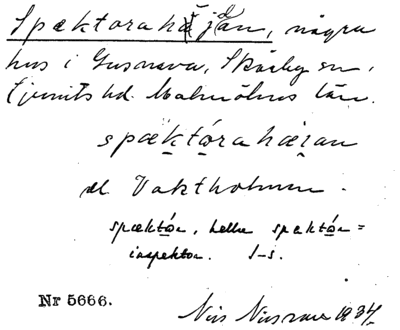 Spektoraha jan, några
hus i Gusnava, Skårby sn,
Ljunits hd. Malmöhus län.
spæktóra hæran
el. Vaktholmen.
spæktón, hellre spektón =
inspektor. I-s.
Nr 5666.
Nils Nilsson 1934.